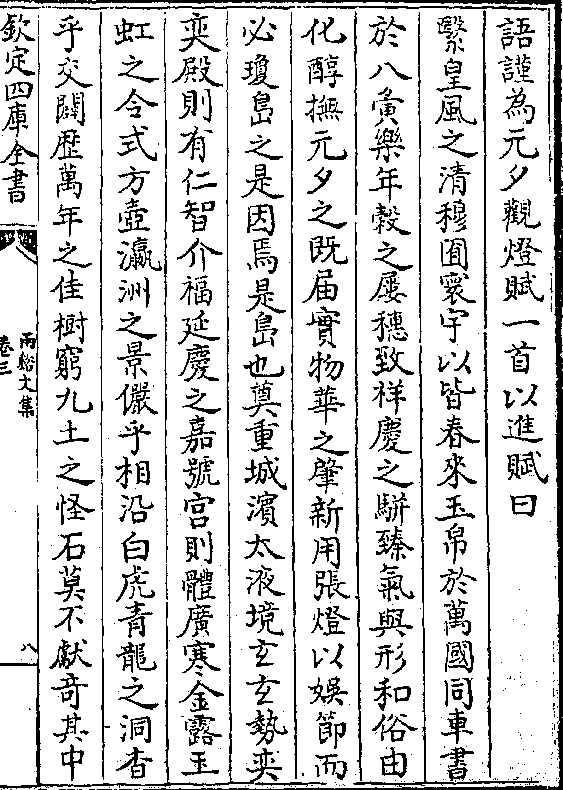 語謹為元夕觀燈賦一首以進賦曰
繄皇風之清穆囿寰宇以皆春來玉帛於萬國同車書
於八夤樂年穀之屢穗致祥慶之駢臻氣與形和俗由
化醇撫元夕之既届實物華之肇新用張燈以娛節而
必瓊島之是因焉是島也奠重城濱太液境玄玄勢奕
奕殿則有仁智介福延慶之嘉號宫則體廣寒金露玉
虹之令式方壺瀛洲之景儼乎相沿白虎青龍之洞杳
乎交闢歴萬年之佳樹窮九土之怪石莫不獻竒其中
欽定四庫全書
兩谿文集
卷三
八